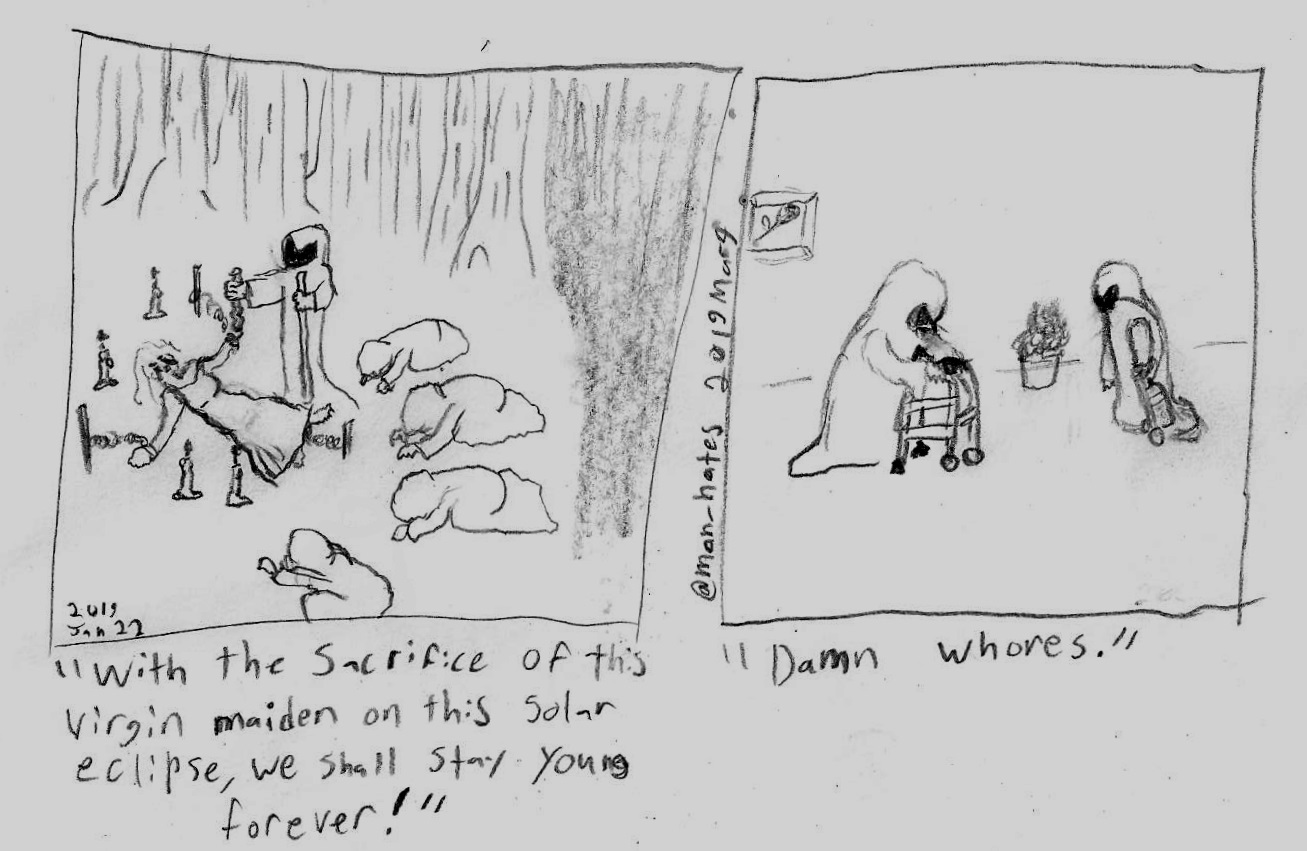 2019
Jan 22
"With the Sacrifice of this
virgin maiden on this solar
eclipse, we shall stay young
forever!"
@man_hates 2019 Mar 9
"Damn whores."